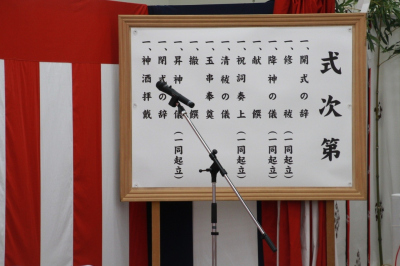 式次第
一、開式の辞
一、修祓(一同起立)
一、降神の儀(一同起立)
一、献饌
一、祝詞奏上(一同起立)
一、清祓の儀
一、玉串奉奠
一、撤饌
一、昇神の儀(一同起立)
一、閉式の辞
一、神酒拝戴